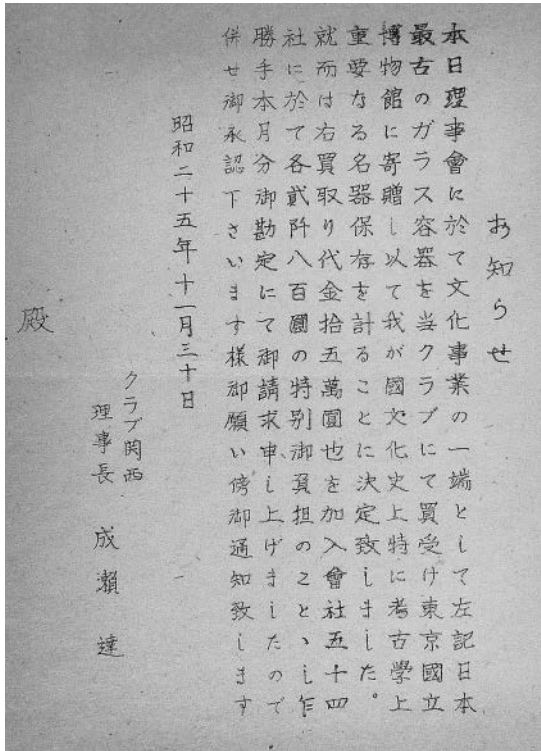 お知らせ
本日理事會に於て文化事業の一端として左記日本
最古のガラス容器を当クラブにて買受け東京國立
博物館に寄贈し以て我が國文化史上特に考古學上
重要なる名器保存を計ることに決定致しました。
就而は右買取り代金拾五萬圓也を加入會社五十四
社に於て各貳阡八百圓の特別御負担のことゝし乍
勝手本月分御勘定にて御請求申し上げましたので
併せ御承認下さいます様御願い傍御通知致します
昭和二十五年十一月三十日
クラブ関西
理事長 成瀬 達
殿